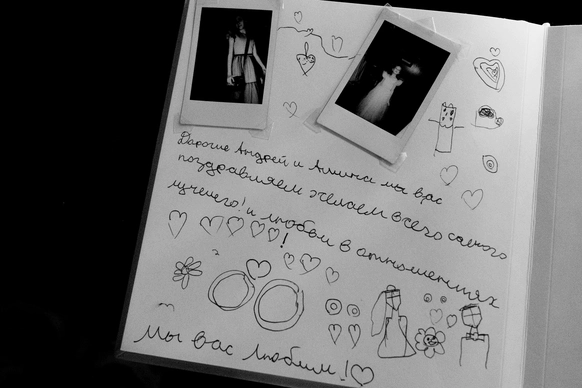 Дарогие Андрей и Алина мы вас
поздравляем желаем всего самого
лучшего! и любви в отношениях
!
Мы вас любим!